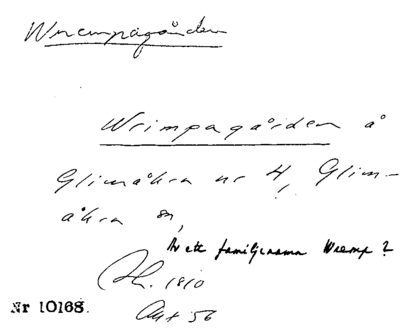 Wrempagården
Wrimpagården å
Glimåkra nr 4, Glim-
åkra sn,
Av ett familjenamn Wremp?
1810
Nr 10168.
Okt 56